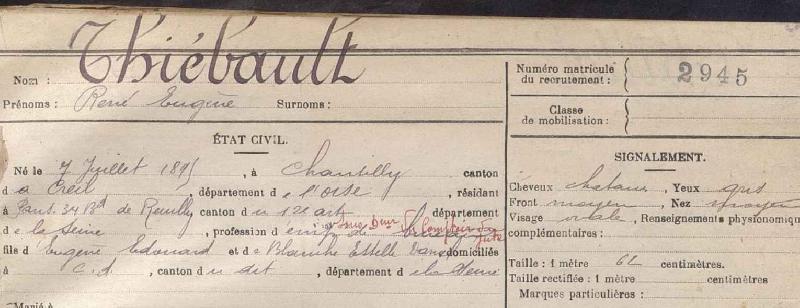 Nom : Thiébault
Prénoms : René Eugène Surnoms :
ÉTAT CIVIL.
Né le 7 Juillet 189, à Chantilly canton
d e Creil, département d e l'oise, résidant
à 34 Bd de Reuilly, canton d u 12e arrt, département
d e la Seine, profession d
fils d' Eugène, Edouard et d e Blanche Estelle domiciliés
à C. d., canton d u dit, département d e la Seine
Marié à
Numéro matricule
du recrutement : 2945
Classe
de mobilisation :
SIGNALEMENT.
Cheveux chatain, Yeux gris
Front moyen, Nez moyen
Visage ovale, Renseignements physionomiq
complémentaires :
Taille : 1 mètre 61 centimètres.
Taille rectifiée : 1 mètre centimètres.
Marques particulières :